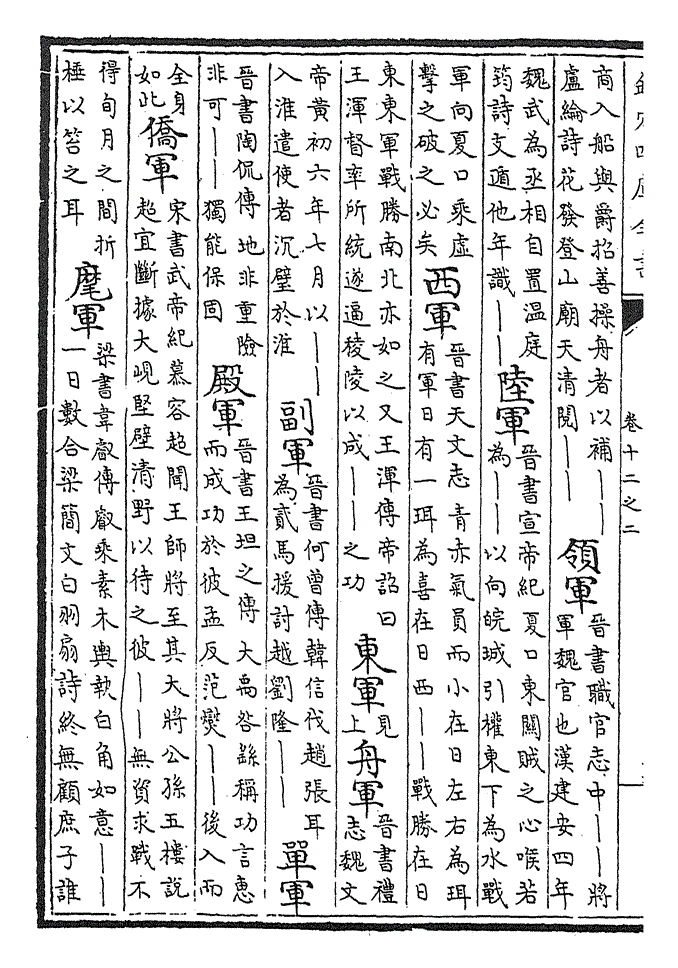 欽定四庫全書 卷十二之二
商入船與爵招善操舟者以補——
盧綸詩花發登山廟天清閱——
領軍
晉書職官志中——將
軍魏官也漢建安四年
魏武為丞相自置溫庭
筠詩支遁他年識——
陸軍
晉書宣帝紀夏口東關賊之心喉若
為——以向皖城引權東下為水戰
軍向夏口乘虛
擊之破之必矣
西軍
晉書天文志青赤氣員而小在日左右為珥
有軍日有一珥為喜在日西——戰勝在日
東東軍戰勝南北亦如之又王渾傳帝詔曰
王渾督率所統遂逼稜陵以成——之功
東軍
見
上
舟軍
晉書禮
志魏文
帝黃初六年七月以——
入淮遣使者沉璧於淮
副軍
晉書何曾傳韓信伐趙張耳
為貳馬援討越劉隆——
單軍
晉書陶侃傳地非重險
非可——獨能保固
殿軍
晉書王坦之傳大禹咎繇稱功言惠
而成功於彼孟反范燮——後入而
全身
如此
僑軍
宋書武帝紀慕容超聞王師將至其大將公孫五樓說
超宜斷據大峴堅壁清野以待之彼——無資求戰不
得旬月之間折
棰以笞之耳
麾軍
梁書韋叡傳叡乘素木輿執白角如意——
一日數合梁簡文白羽扇詩終無顧庶子誰